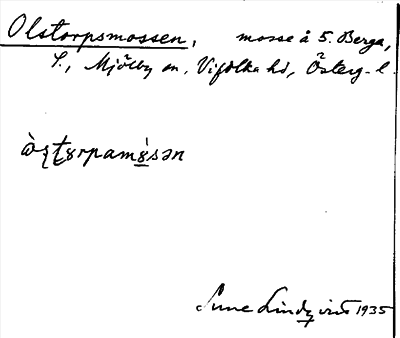 Olstorpsmossen, mosse å S. Berga,
S., Mjölby sn, Vifolka hd, Österg. l.
Sune Lindqvist 1935